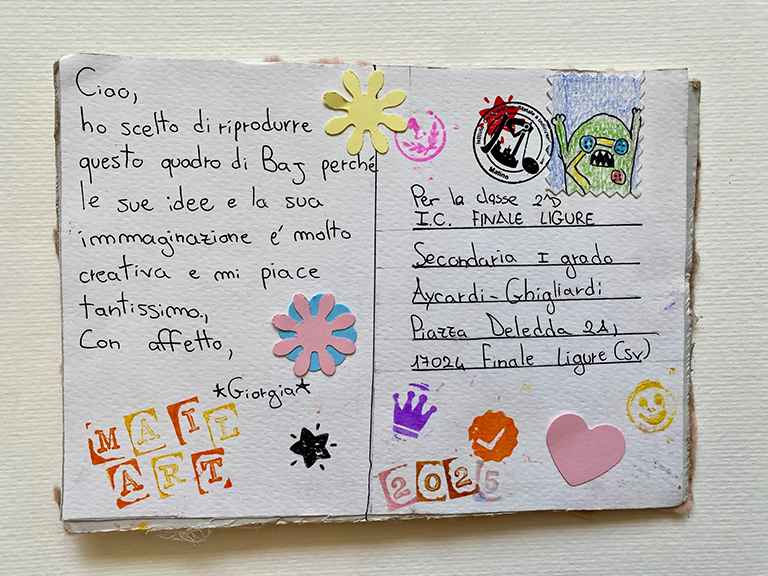 Ciao,
ho scelto di riprodurre
questo quadro di Baj perché
le sue idee e la sua
immaginazione é molto
creativa e mi piace
tantissimo.,
Con affetto,
*Giorgia*
MAIL
ART
Matino
Per la classe 2ªD
I.C. FINALE LIGURE
Secondaria I grado
Aycardi-Ghigliardi
Piazza Deledda 21,
17024 Finale Ligure (SV)
2025